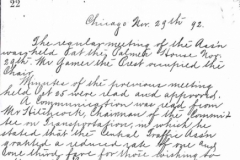 22
Chicago Nov. 29th 92.
The regular meeting of the Ass'n
was held at the Palmer House Nov.
29th. Mr Gamer the Prest occupied the
Chair.
Minutes of the previous meeting
held Oct 25 were read and approved.
A Communication was read from
Mr Chairman of the Commit
tee on Transportation, in which he
stated that the Central Traffic Ass'n
granted a reduced rate of one and
one third fare for those wishing to